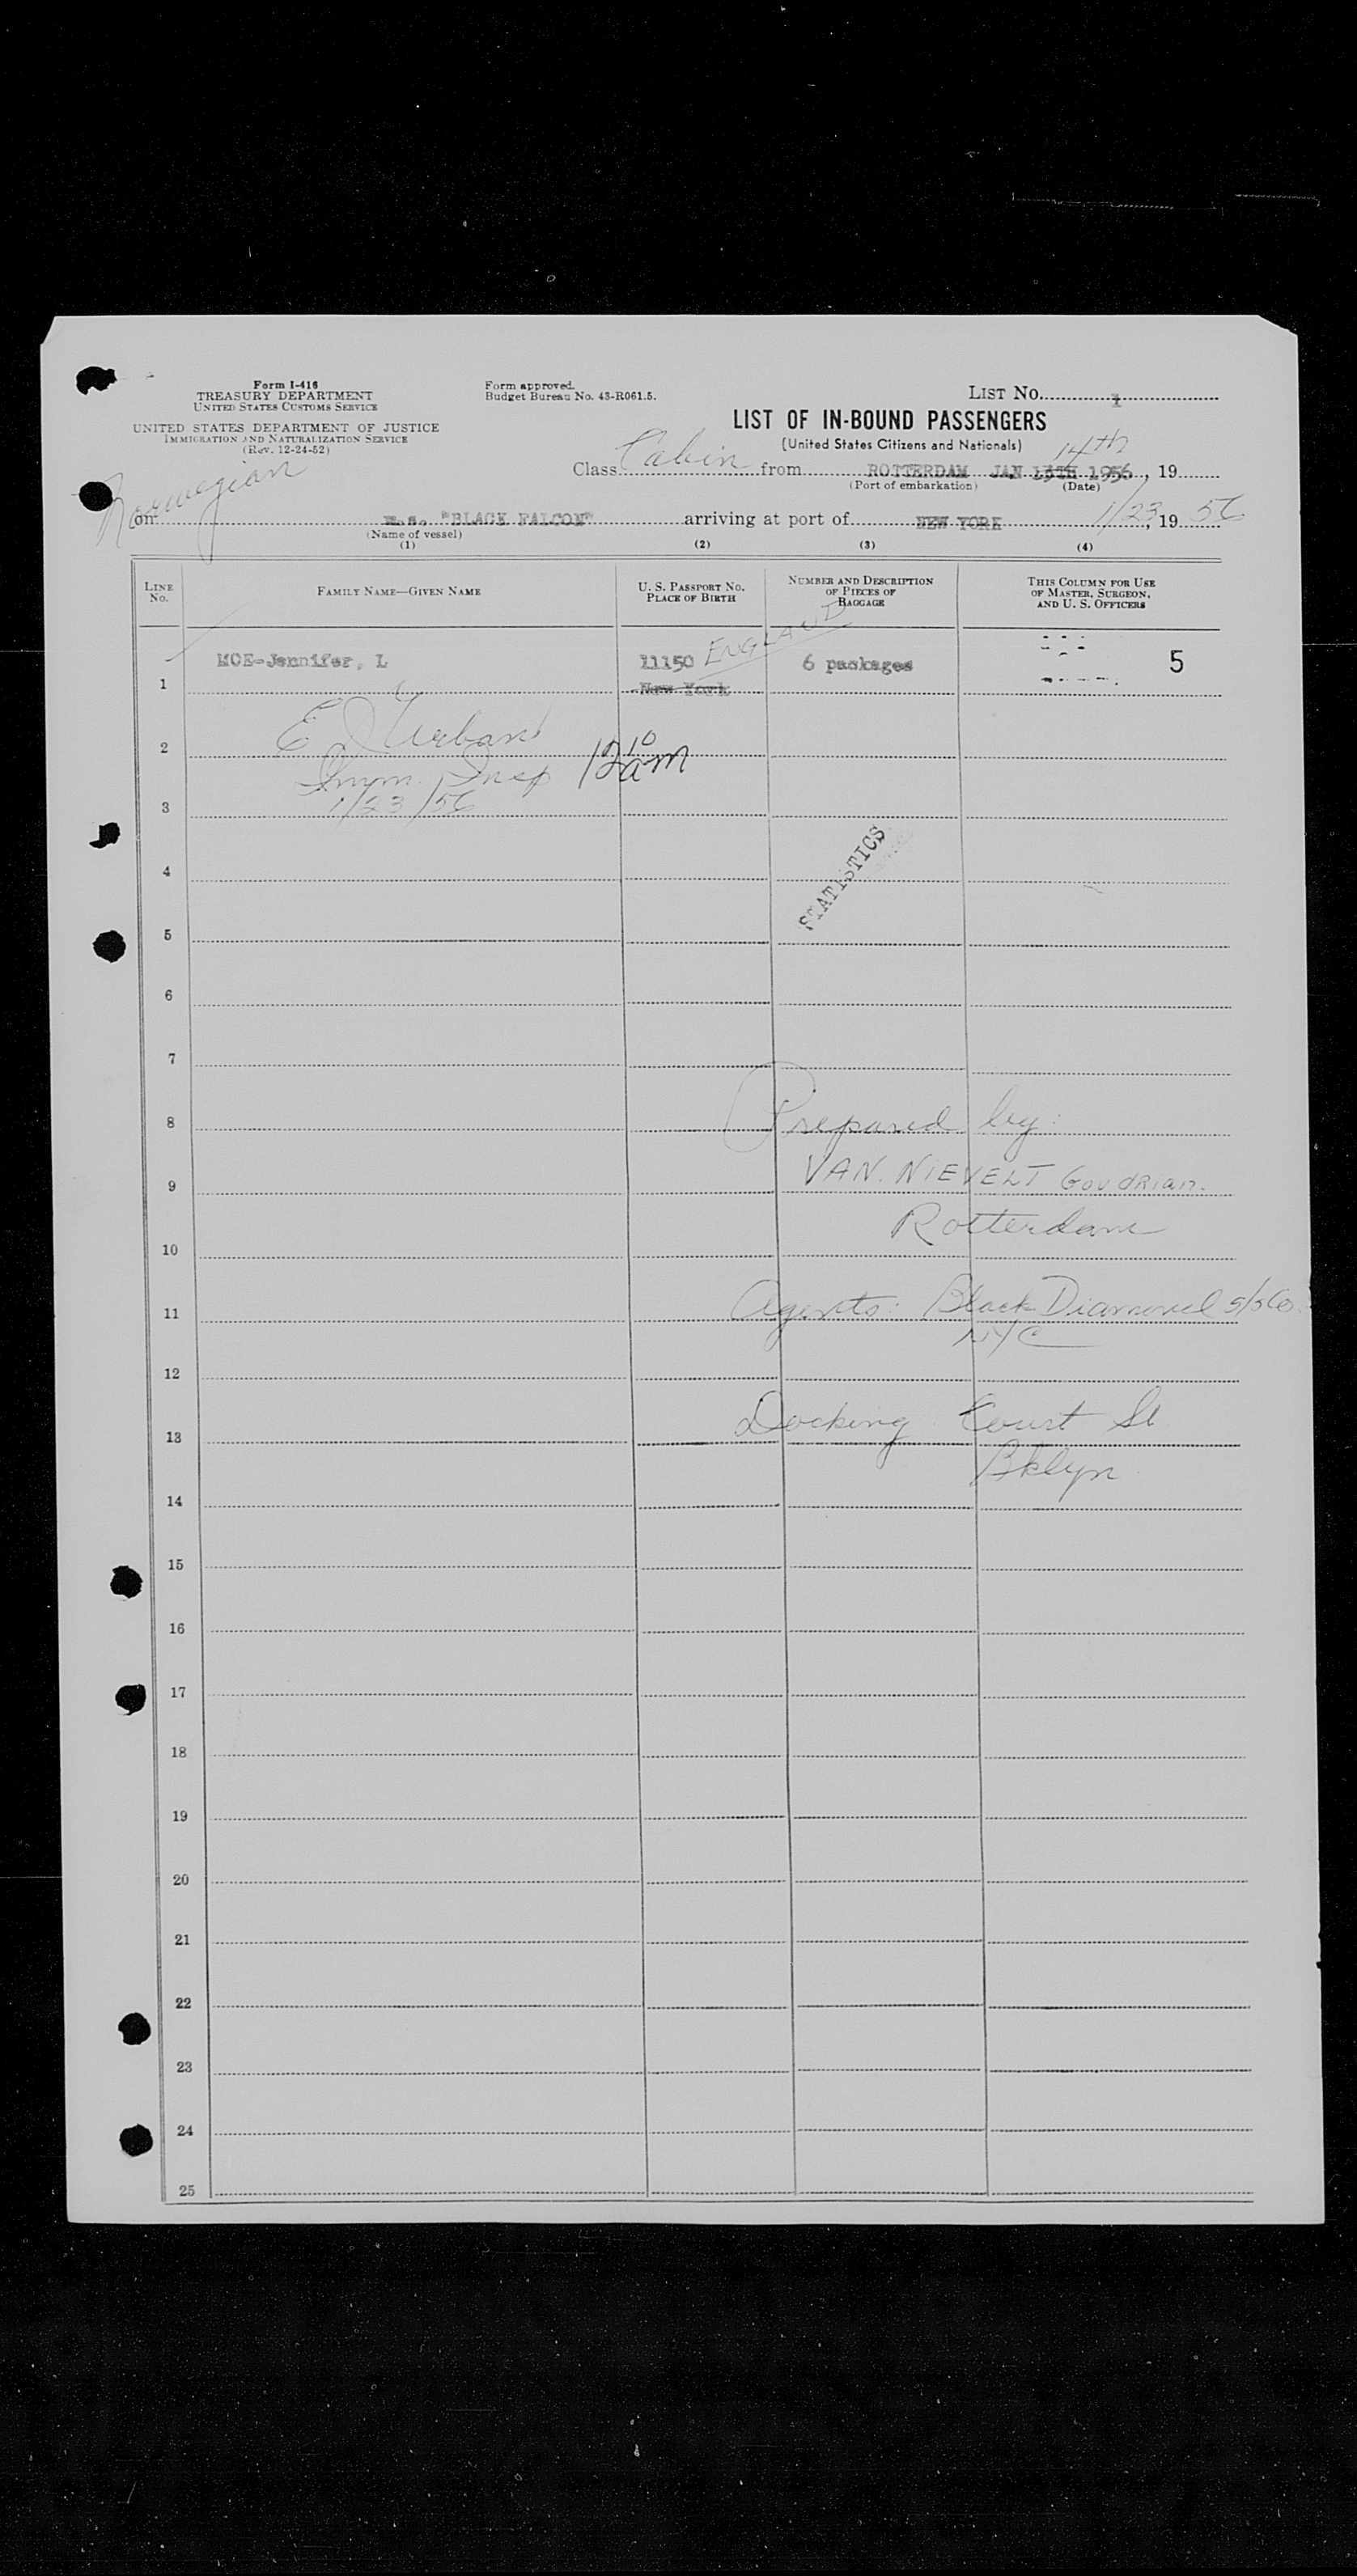 Form I-416
TREASURY DEPARTMENT
UNITED STATES CUSTOMS SERVICE
UNITED STATES DEPARTMENT OF JUSTICE
IMMIGRATION AND NATURALIZATION SERVICE
(Rev. 12-24-52)
Form approved.
Budget Bureau No. 43-R061.5.
LIST NO. 1
LIST OF IN-BOUND PASSENGERS
(United States Citizens and Nationals)
14th
Class Cabin from ROTTERDAM JAN 13TH 1956, 19
(Port of embarkation) (Date)
Norwegian
on m.s. "BLACK FALCON" arriving at port of NEW YORK 1/23, 19 56
(Name of vessel)
(1) (2) (3) (4)
LINE NO. FAMILY NAME—GIVEN NAME U. S. PASSPORT NO. PLACE OF BIRTH NUMBER AND DESCRIPTION OF PIECES OF BAGGAGE THIS COLUMN FOR USE OF MASTER, SURGEON, AND U. S. OFFICERS
MOE-Jennifer, L 11150 ENGLAND 6 packages 5
1 New York
E J Urban
2 12 10 am
Imm. Insp
3 1/23/56
STATISTICS
4
5
6
7
8 Prepared by:
9 VAN. NIEVELT GOUDRIAN.
10 Rotterdam
11 Agents: Black Diamond S/S Co.
NYC
12
13 Docking Court St
Bklyn
14
15
16
17
18
19
20
21
22
23
24
25